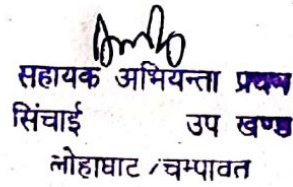 सहायक अभियन्ता प्रथम
सिंचाई उप खण्ड
लोहाघाट / चम्पावत